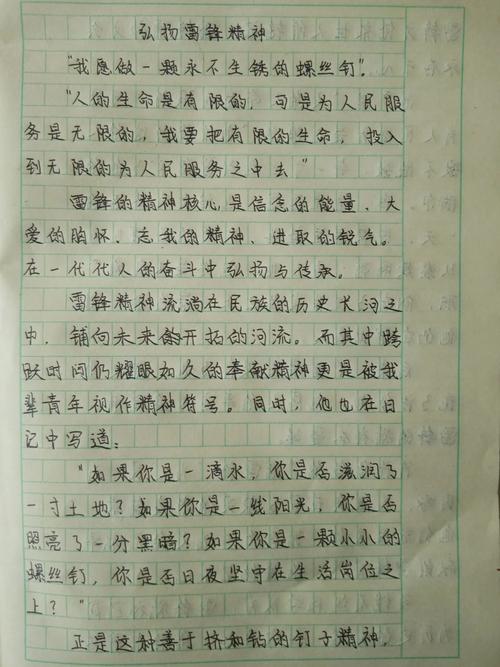 弘扬雷锋精神
"我愿做一颗永不生铁的螺丝钉".
"人的生命是有限的，可是为人民服
务是无限的，我要把有限的生命，投入
到无限的为人民服务之中去"
雷锋的精神核心是信念的能量、大
爱的胸怀、忘我的精神、进取的锐气。
在一代代人的奋斗中弘扬与传承。
雷锋精神流淌在民族的历史长河之
中，铺向未来的开拓的河流。而其中跨
跃时间仍耀眼如久的奉献精神更是被我
辈青年视作精神符号。同时，他也在日
记中写道：
"如果你是一滴水，你是否滋润了
一寸土地？如果你是一线阳光，你是否
照亮了一分黑暗？如果你是一颗小小的
螺丝钉，你是否日夜坚守在生活岗位之
上？"
正是这种善于挤和钻的钉子精神，